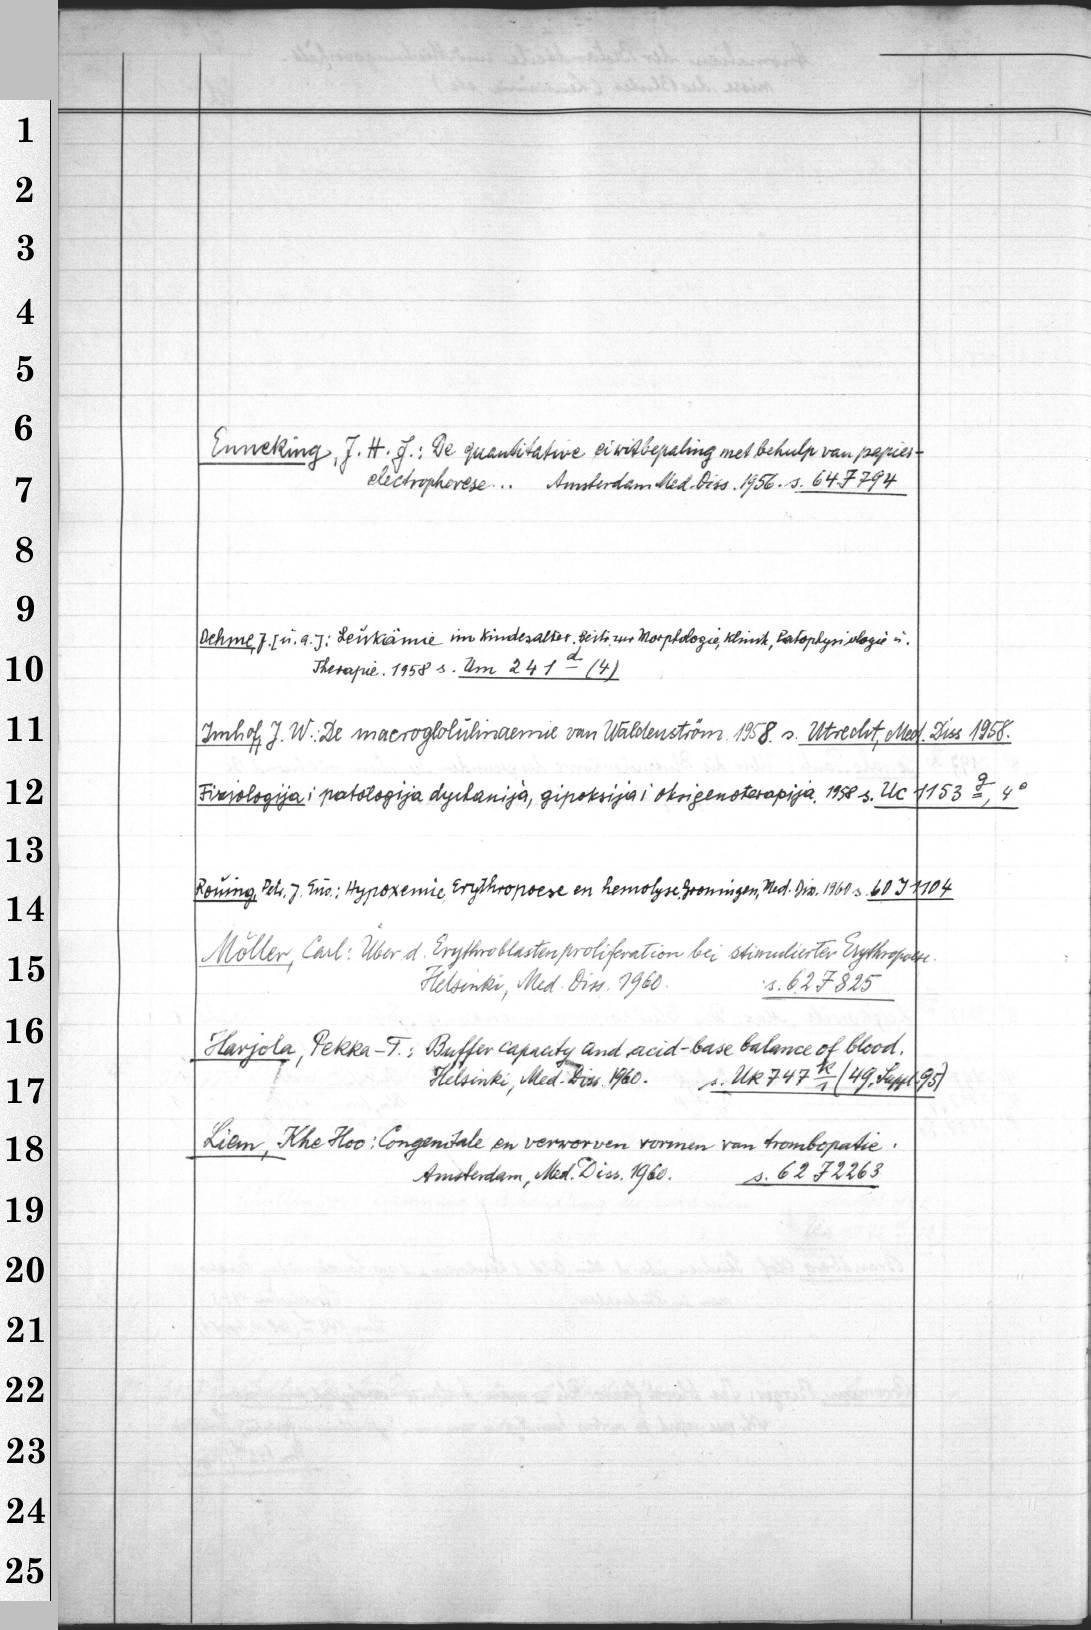 1
2
3
4
5
6
Enneking, J. H. J.: De quantitative eiwitbepaling met behulp van papier-
7
electrophorese... Amsterdam Med. Diss. 1956. s. 64 F 794
8
9
Oehme, J. [u. a.]: Leukämie im Kindesalter. Beitr. zur Morphologie, Klinik, Patophysiologie u.
10
Therapie. 1958 s. Um 241 d (4)
11
Imhof, J. W.: De macroglobulinaemie van Waldenström. 1958. s. Utrecht, Med. Diss 1958.
12
Fiziologija i patologija dychanija, gipoksija i oksigenoterapija. 1958 s. Uc 1153 g, 4°
13
14
Rouing, Petr. J. Eno.: Hypoxemie, Erythropoese en hemolyse. Groningen, Med. Diss. 1960 s. 60 J 1104
15
Möller, Carl: Über d. Erythroblastenproliferation bei stimulierter Erythropoese.
Helsinki, Med. Diss. 1960. s. 62 F 825
16
Harjola, Pekka-T.: Buffer capacity and acid-base balance of blood.
17
Helsinki, Med. Diss. 1960. s. Uk 747 k/1 (49, Suppl. 95)
18
Liem, Khe Hoo: Congenitale en verworven vormen van trombopatie.
Amsterdam, Med. Diss. 1960. s. 62 F 2263
19
20
21
22
23
24
25